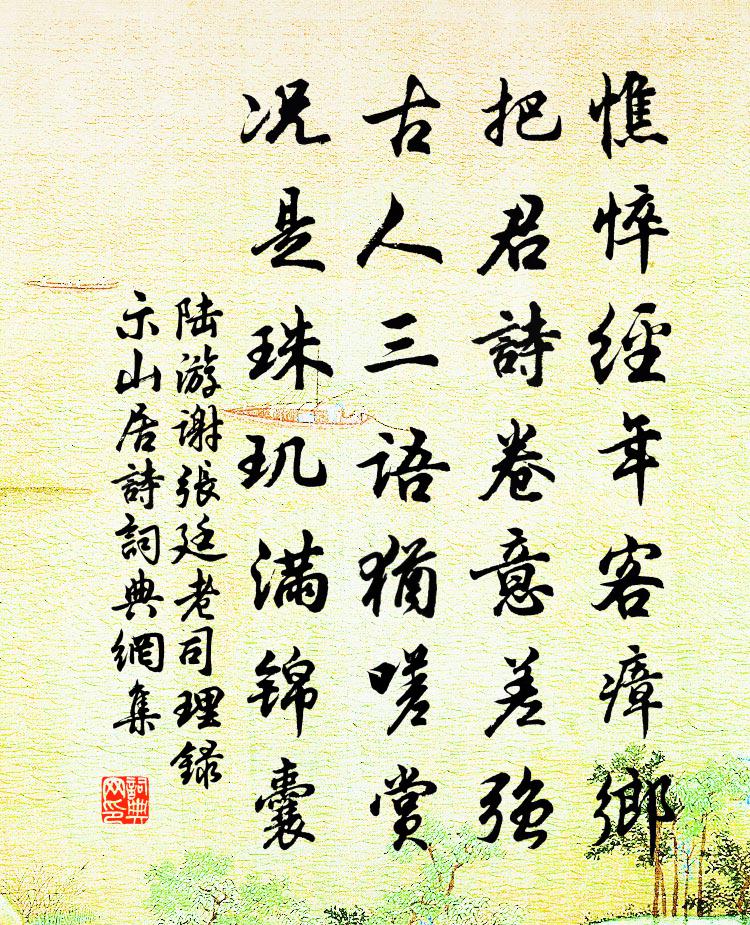 憔悴經年客瘴鄉
把君詩卷意差强
古人三语猶嗟赏
况是珠玑满锦囊
陆游谢張廷老司理録
示山居詩詞典網集
詞典
网印